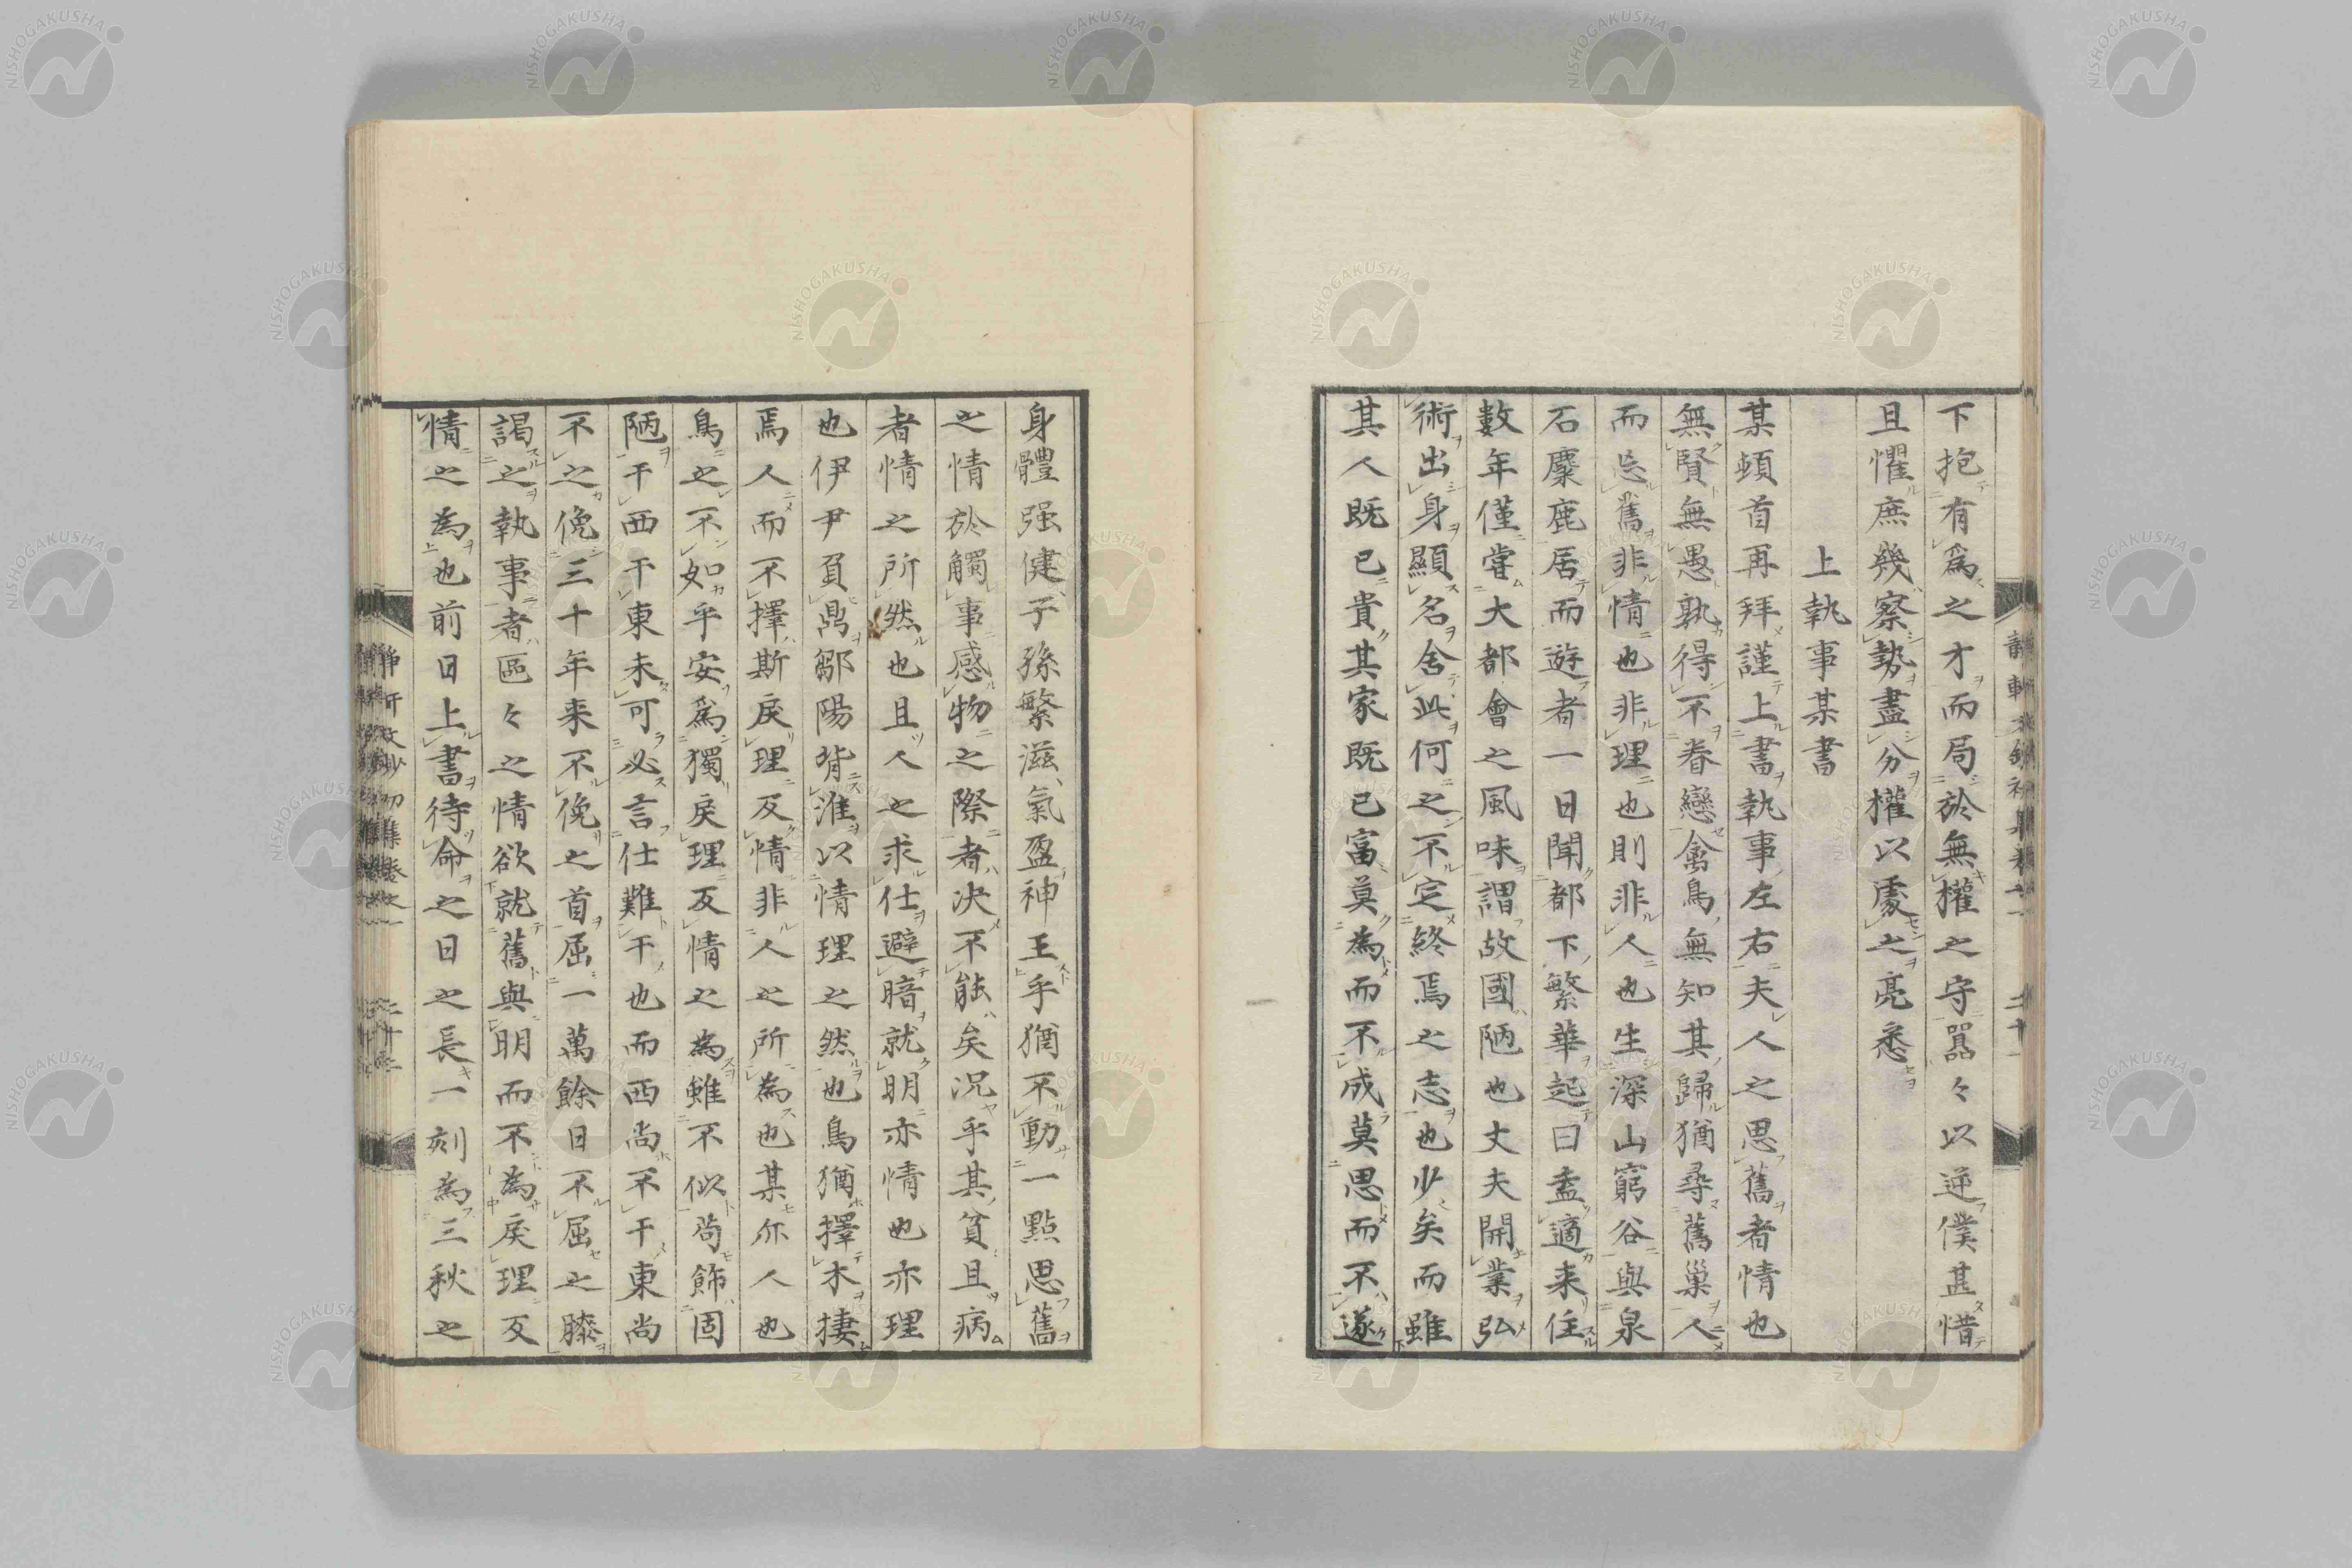 下抱有爲之才而局於無權之守囂々以逆僕甚惜
且懼庶幾察勢盡分權以處之亮悉
上執事某書
某頓首再拜謹上書執事左右夫人之思舊者情也
無賢無愚孰得不眷戀禽鳥無知其歸猶尋舊巢人
而忘舊非情也非理也則非人也生深山窮谷與泉
石麋鹿居而遊者一日聞都下繁華起曰盍適来住
數年僅嘗大都會之風味謂故國陋也丈夫開業弘
術出身顯名舍此何之不定終焉之志也少矣而雖
其人既已貴其家既已富莫為而不成莫思而不遂
身體强健子孫繁滋氣盈神王乎猶不動一點思舊
之情於觸事感物之際者决不能矣况乎其貧且病
者情之所然也且人之求仕避暗就明亦情也亦理
也伊尹負鼎鄒陽背淮以情理之然也鳥猶擇木捿
焉人而不擇斯戾理反情非人之所為也某亦人也
鳥之不如乎安爲獨戾理反情之為雖不似苟飾固
陋干西干東未可必言仕難干也而西尚不干東尚
不之俛三十年来不俛之首屈一萬餘日不屈之膝
謁之執事者區々之情欲就舊與明而不為戾理反
情之為也前日上書待命之日之長一刻為三秋之